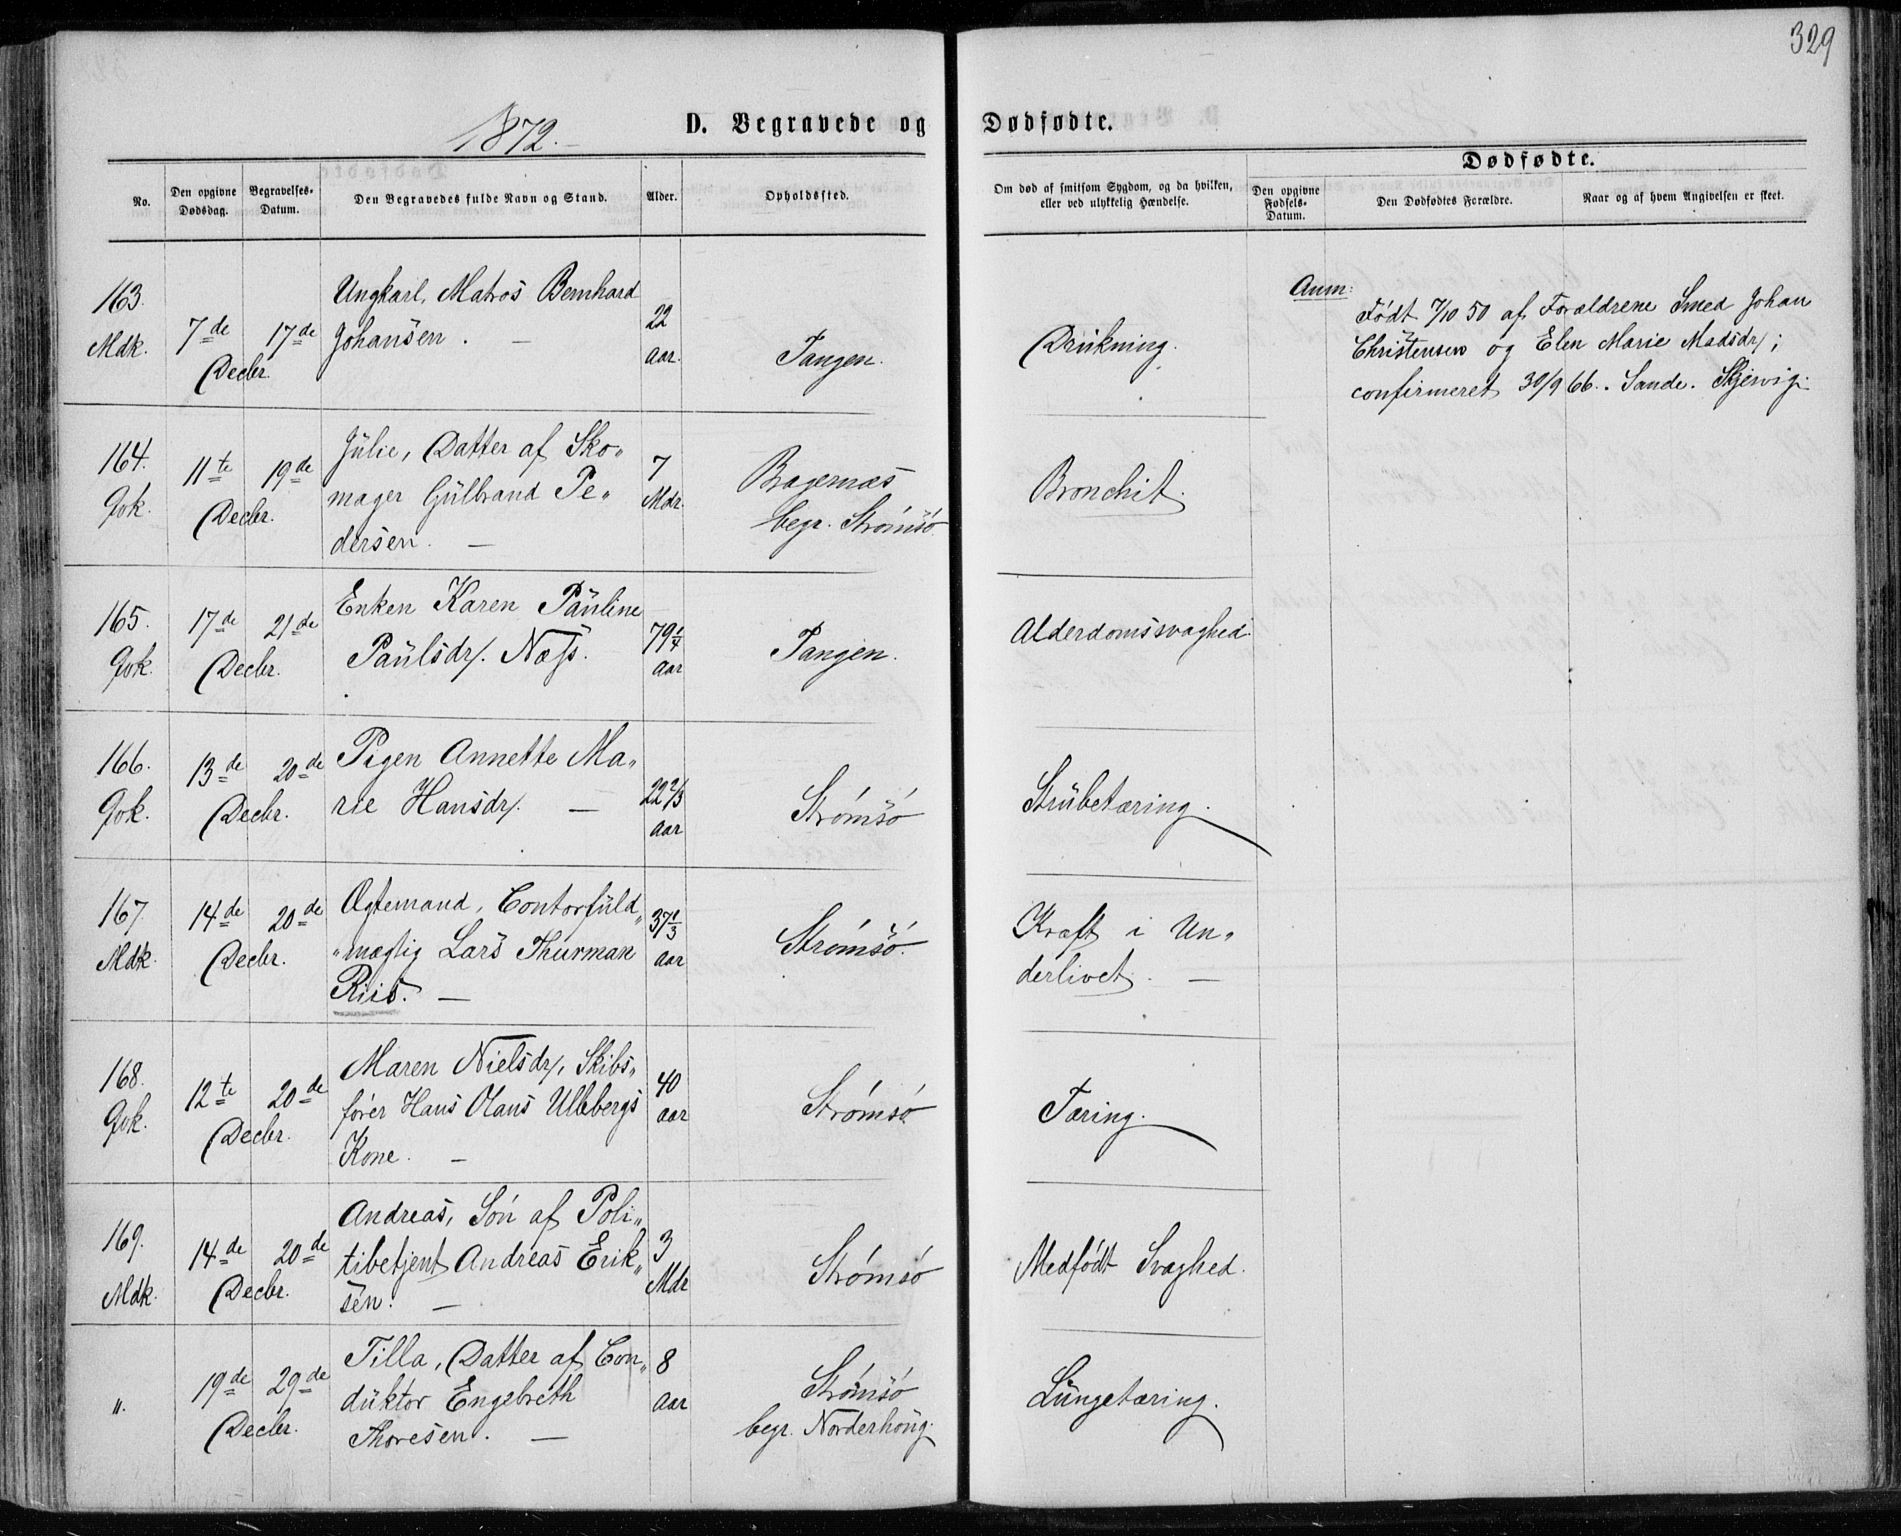 329
1872.
D. Begravede og Dødfødte.
Dødfødte.
No.
Den opgivne Dødsdag.
Begravelses-Datum.
Den Begravedes fulde Navn og Stand.
Alder.
Opholdssted.
Om død af smitsom Sygdom, og da hvilken,
eller ved ulykkelig Hændelse.
Den opgivne Fødsels-Datum.
Den Dødfødtes Forældre.
Naar og af hvem Angivelsen er skeet.
163.
Mdk.
7de 17de
Decbr.
Ungkarl, Matros Bernhard
Johansen. —
22
aar.
Tangen.
Drukning.
Anm:
Født 7/10 50 af Forældrene Smed Johan
Christensen og Elen Marie Madsdr;
confirmeret 30/9 66. Sande. Skjervig.
164.
Qvk.
11te 19de
Decbr.
Jülie, Datter af Sko„
mager Gülbrand Pe„
dersen. —
7
Mdr.
Bragernæs
begr. Strømsö.
Bronchit.
165.
Qvk.
17de 21de
Decbr.
Enken Karen Paüline
Paülsdr. Næss.
79 1/4
aar
Tangen.
Alderdomssvaghed.
166.
Qvk.
13de 20de
Decbr.
Pigen Annette Ma„
rie Hansdr. —
22 2/3
aar
Strømsö
Strübetæring.
167.
Mdk.
14de 20de
Decbr.
Ægtemand, Contorfüld„
„mægtig Lars Thurman
Riis. —
37 1/3
aar
Strømsö.
Kræft i Un„
derlivet. —
168.
Qvk.
12te 20de
Decbr.
Maren Nielsdr, Skibs„
fører Hans Olaus Ullebergs
Kone. —
40
aar
Strømsö
Tæring.
169.
Mdk.
14de 20de
Decbr.
Andreas, Søn af Poli„
tibetjent Andreas Erik„
sen. —
3
Mdr
Strømsö
Medfødt Svaghed.
„.
19de 29de
Decbr.
Tilla, Datter af Con„
düktør Engebreth
Thoresen. —
8
aar
Strømsö
begr. Norderhoug.
Lüngetæring.